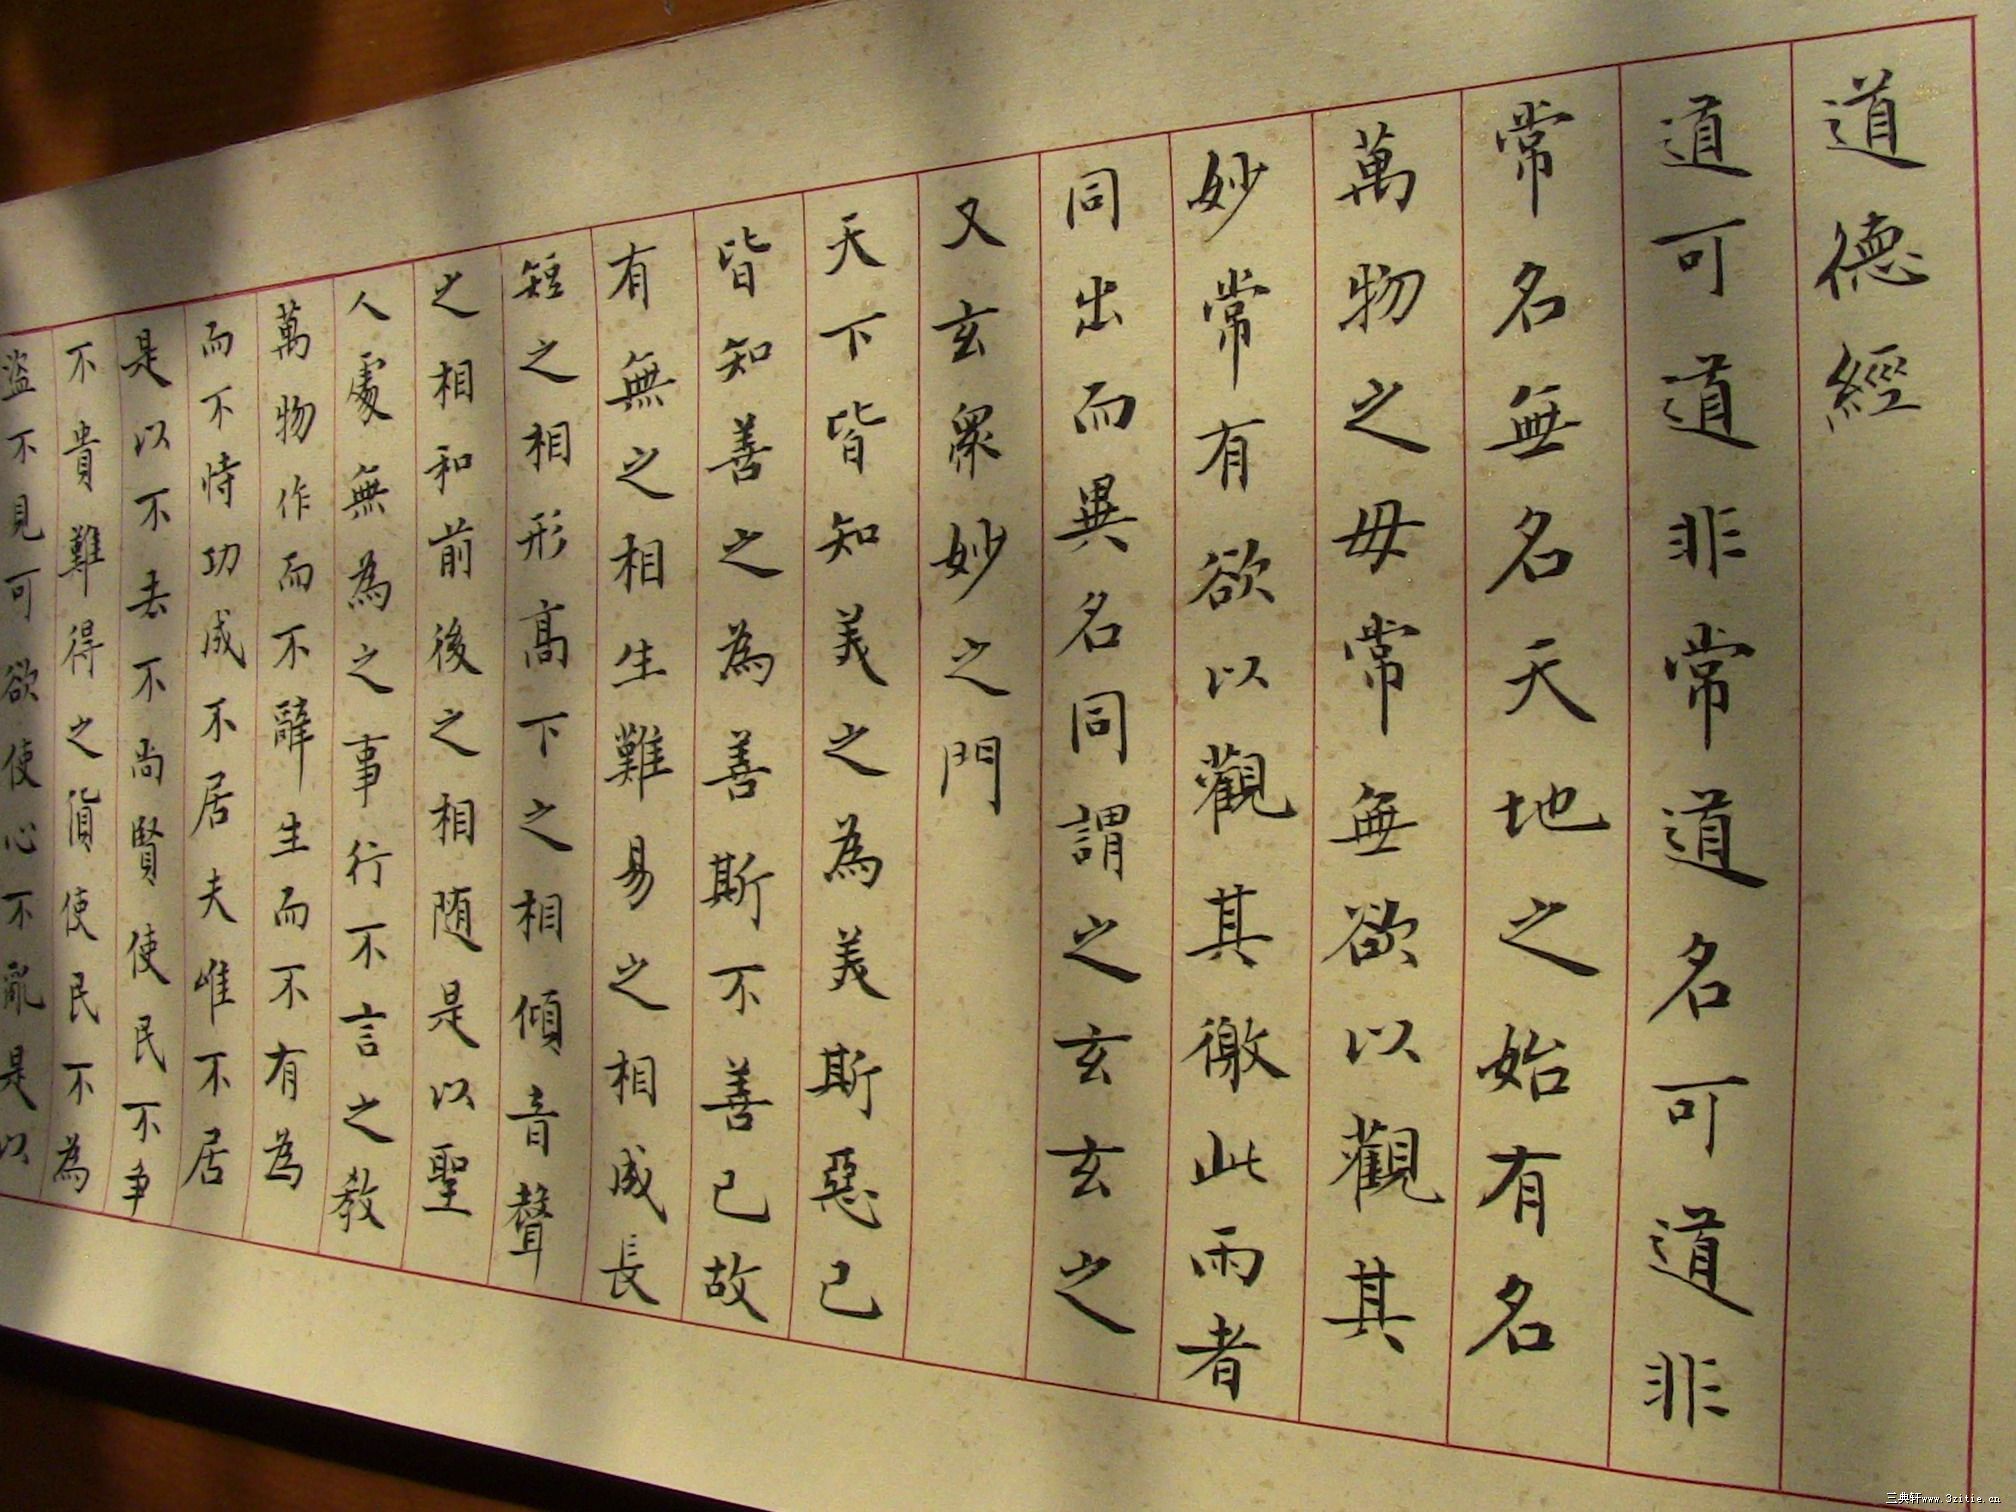 道德經
道可道非常道名可道非
常名無名天地之始有名
萬物之母常無欲以觀其
妙常有欲以觀其徼此兩者
同出而異名同謂之玄玄之
又玄眾妙之門
天下皆知美之為美斯惡已
皆知善之為善斯不善已故
有無之相生難易之相成長
短之相形高下之相傾音聲
之相和前後之相随是以聖
人處無為之事行不言之教
萬物作而不辭生而不有為
而不恃功成不居夫唯不居
是以不去不尚賢使民不争
不貴難得之貨使民不為
盜不見可欲使心不亂是以
三典轩www.3zitie.cn